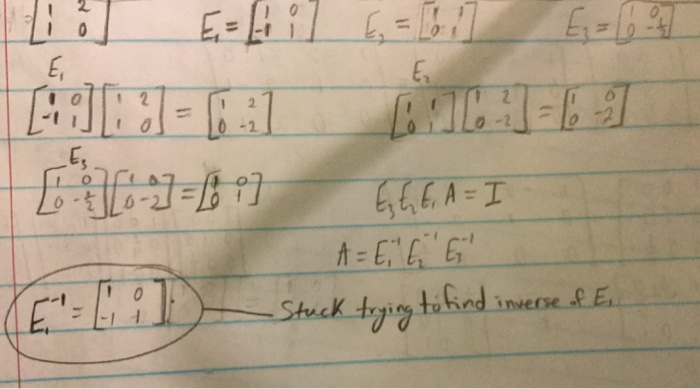 [1 2; 1 0] E₁ = [1 0; -1 1] E₂ = [1 1; 0 1] E₃ = [1 0; 0 -½]
E₁ E₂
[1 0; -1 1] [1 2; 1 0] = [1 2; 0 -2] [1 1; 0 1] [1 2; 0 -2] = [1 0; 0 -2]
E₃
[1 0; 0 -½] [1 0; 0 -2] = [1 0; 0 1] E₃ E₂ E₁ A = I
A = E₁⁻¹ E₂⁻¹ E₃⁻¹
E₁⁻¹ = [1 0; -1 1] Stuck trying to find inverse of E₁